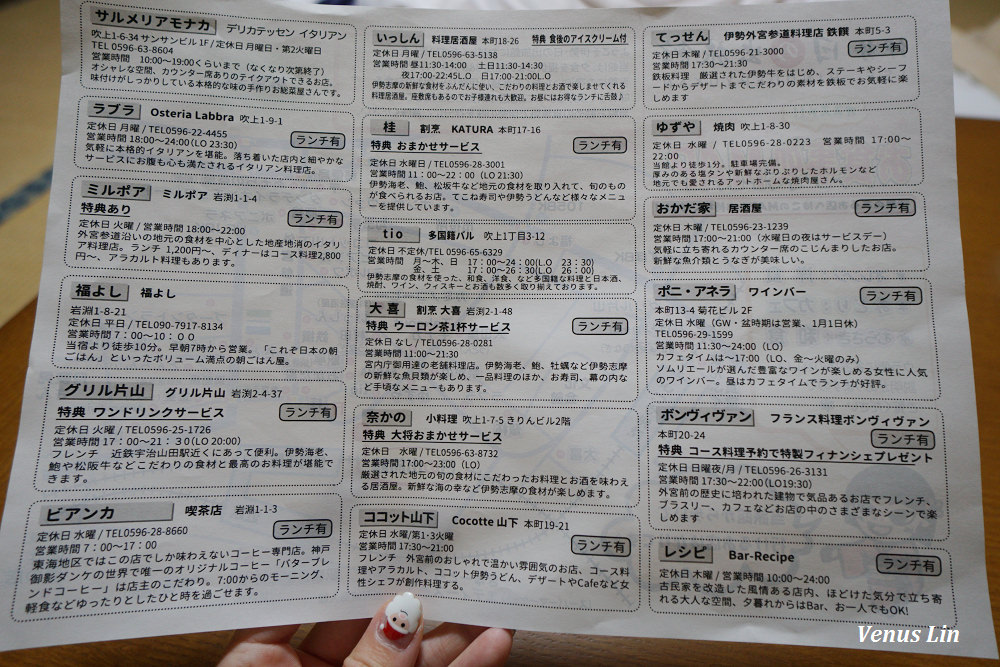 サルメリアモナカ デリカテッセン イタリアン
吹上1-6-34 サンサンビル 1F / 定休日 月曜日・第2火曜日
TEL 0596-63-8604
営業時間 10:00〜19:00くらいまで(なくなり次第終了)
オシャレな空間、カウンター席ありのテイクアウトできるお店。
味付けがしっかりしている本格的な味の手作りお総菜屋さんです。
ラブラ Osteria Labbra 吹上1-9-1
定休日 月曜 / TEL0596-22-4455
営業時間 18:00〜24:00(LO 23:30)
ランチ有
気軽に本格的イタリアンを堪能。落ち着いた店内と細やかな
サービスにお腹も心も満たされるイタリア料理店。
ミルポア ミルポア 岩渕1-1-4
特典あり
ランチ有
定休日 火曜 / 営業時間 18:00〜22:00
外宮参道沿いの地元の食材を中心とした地産地消のイタリ
ア料理店。ランチ 1,200円〜、ディナーはコース料理2,800
円〜、アラカルト料理もあります。
福よし 福よし
岩渕1-8-21
定休日 平日 / TEL090-7917-8134
営業時間 7:00〜10:00
当宿より徒歩10分。早朝7時から営業。「これぞ日本の朝
ごはん」といったボリューム満点の朝ごはん屋。
グリル片山 グリル片山 岩渕2-4-37
特典 ワンドリンクサービス
ランチ有
定休日 火曜 / TEL0596-25-1726
営業時間 17:00〜21:30(LO 20:00)
フレンチ 近鉄宇治山田駅近くにあって便利。伊勢海老、
鮑や松阪牛などこだわりの食材と最高のお料理が堪能で
きます。
ビアンカ 喫茶店 岩淵1-1-3
定休日 水曜 / TEL0596-28-8660
ランチ有
営業時間 7:00〜17:00
東海地区ではこの店でしか味わえないコーヒー専門店。神戸
御影ダンケの世界で唯一のオリジナルコーヒー「バターブレ
ンドコーヒー」は店主のこだわり。7:00からのモーニング、
軽食などゆったりとしたひと時を過ごせます。
いっしん 料理居酒屋 本町18-26 特典 食後のアイスクリーム付
定休日 月曜 / TEL0596-63-5138
営業時間 昼11:30-14:00 土日11:30-14:30
夜17:00-22:45L.O 日17:00-21:00L.O
伊勢志摩の新鮮な食材をふんだんに使い、こだわりの料理とお酒で楽しませてくれる
料理居酒屋。座敷席もあるのでお子様連れも大歓迎。お昼にはお得なランチに舌鼓♪
桂 割烹 KATURA 本町17-16
特典 おまかせサービス
ランチ有
定休日 水曜日 / TEL0596-28-3001
営業時間 11:00〜22:00 (LO 21:30)
伊勢海老、鮑、松坂牛など地元の食材を取り入れて、旬のもの
が食べられるお店。てこね寿司や伊勢うどんなど様々なメニュ
ーを提供しています。
tio 多国籍バル 吹上1丁目3-12
定休日 不定休/TEL 0596-65-6329
営業時間 月〜木、日 17:00〜24:00(L.O 23:30)
金、土 17:00〜26:30(L.O 26:00)
伊勢志摩の食材を使った、和食、洋食、など多国籍な料理と日本酒、
焼酎、ワイン、ウィスキーとお酒も数多く取り揃えております。
大喜 割烹 大喜 岩渕2-1-48
特典 ウーロン茶1杯サービス
ランチ有
定休日 なし / TEL0596-28-0281
営業時間 11:00〜21:30
宮内庁御用達の老舗料理店。伊勢海老、鮑、牡蠣など伊勢志摩
の新鮮な魚貝類が楽しめ、一品料理のほか、お寿司、幕の内な
ど手頃なメニューもあります。
奈かの 小料理 吹上1-7-5 きりんビル2階
特典 大将おまかせサービス
定休日 水曜 / TEL0596-63-8732
営業時間 17:00〜23:00 (LO)
厳選された地元の旬の食材にこだわったお料理とお酒を味わえ
る居酒屋。新鮮な海の幸など伊勢志摩の食材が楽しめます。
ココット山下 Cocotte 山下 本町19-21
定休日 水曜/第1·3火曜
ランチ有
営業時間 17:30〜21:00
フレンチ 外宮前のおしゃれで温かい雰囲気のお店、コース料
理やアラカルト、ココット伊勢うどん、デザートやCafeなど女
性シェフが創作料理する。
てっせん 伊勢外宮参道料理店 鉄饌 本町5-3
定休日 木曜 / TEL0596-21-3000
ランチ有
営業時間 17:30〜21:30
鉄板料理 厳選された伊勢牛をはじめ、ステーキやシーフ
ードからデザートまでこだわりの素材を鉄板でお気軽に楽
しめます
ゆずや 焼肉 吹上1-8-30
定休日 水曜 / TEL0596-28-0223 営業時間 17:00〜
22:00
当館より徒歩1分。駐車場完備。
厚みのある塩タンや新鮮なぷりぷりしたホルモンなど
地元でも愛されるアットホームな焼肉屋さん。
おかだ家 居酒屋
ランチ有
定休日 木曜 / TEL0596-23-1239
営業時間 17:00〜21:00 (水曜日の夜はサービスデー)
気軽に立ち寄れるカウンター席のこじんまりしたお店。
新鮮な魚介類とうなぎが美味しい。
ポニ・アネラ ワインバー
ランチ有
本町13-4 菊花ビル 2F
定休日 水曜 (GW・盆時期は営業、1月1日休)
TEL0596-29-1599
営業時間 11:30〜24:00 (LO)
カフェタイムは〜17:00 (LO、金〜火曜のみ)
ソムリエールが選んだ豊富なワインが楽しめる女性に人気
のワインバー。昼はカフェタイムでランチが好評。
ボンヴィヴァン フランス料理ボンヴィヴァン
本町20-24
ランチ有
特典 コース料理予約で特製フィナンシェプレゼント
定休日 日曜夜/月 / TEL0596-26-3131
営業時間 17:30〜22:00(LO19:30)
外宮前の歴史に培われた建物で気品あるお店でフレンチ、
ブラスリー、カフェなどお店の中のさまざまなシーンで楽
しめます
レシピ Bar-Recipe
ランチ有
定休日 木曜 / 営業時間 10:00〜24:00
古民家を改造した風情ある店内、ほどけた気分で立ち寄
れる大人な空間、夕暮れからはBar、お一人でもOK!
Venus Lin